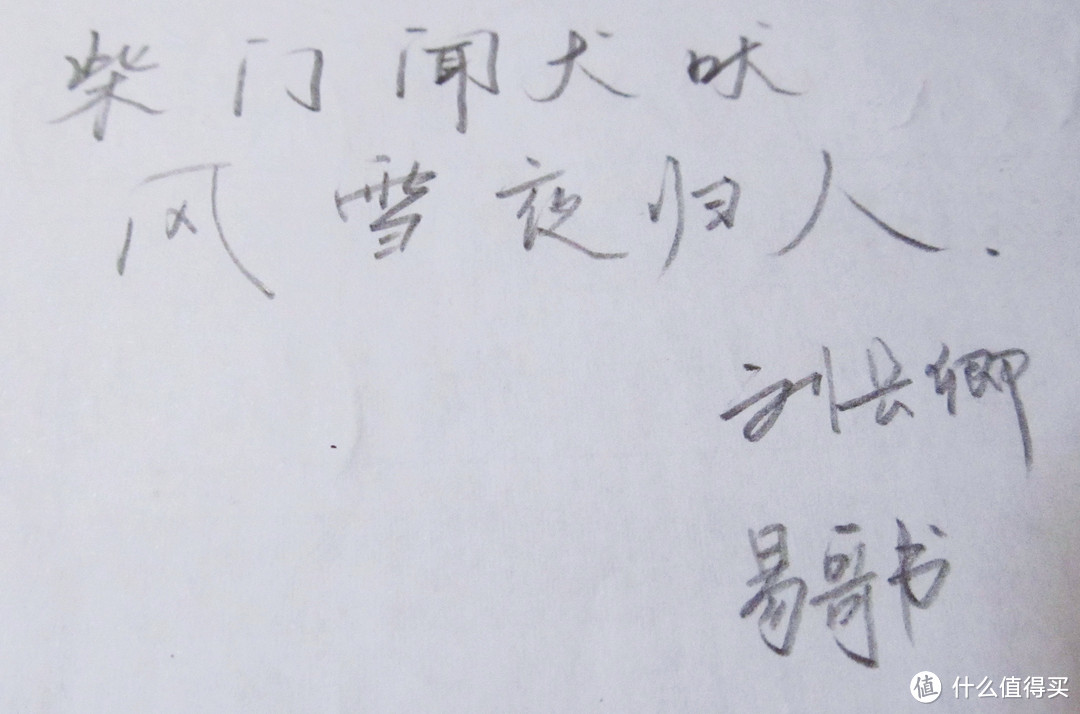 柴门闻犬吠
风雪夜归人.
刘长卿
易哥书
值 什么值得买